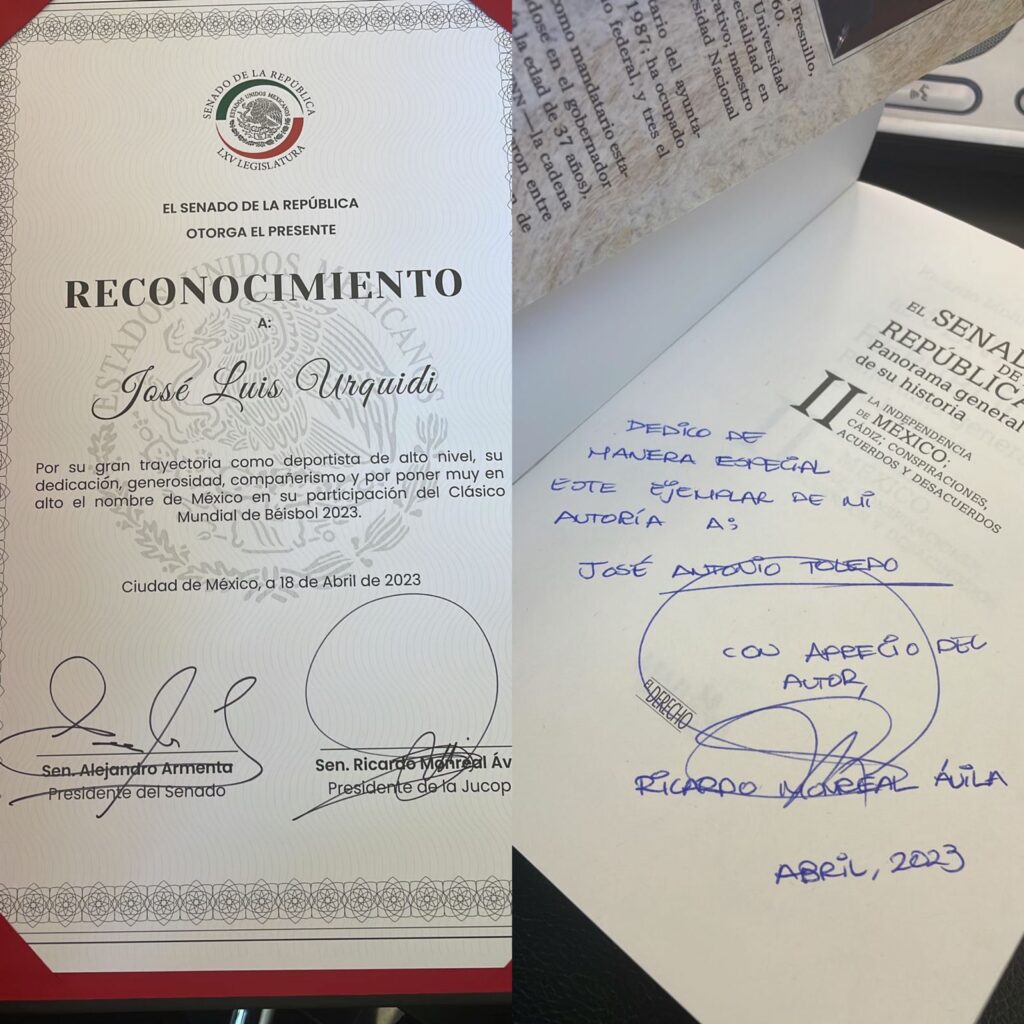 SENADO DE LA REPÚBLICA
ESTADOS UNIDOS MEXICANOS
LXV LEGISLATURA
EL SENADO DE LA REPÚBLICA
OTORGA EL PRESENTE
ESTADOS UNIDOS MEXICANOS
RECONOCIMIENTO
A:
José Luis Urquidi
Por su gran trayectoria como deportista de alto nivel, su
dedicación, generosidad, compañerismo y por poner muy en
alto el nombre de México en su participación del Clásico
Mundial de Béisbol 2023.
Ciudad de México, a 18 de Abril de 2023
Sen. Alejandro Armenta
Presidente del Senado
Sen. Ricardo Monreal Áv
Presidente de la Jucop
Fresnillo,
60.
Universidad
pecialidad en
rativo; maestro
rsidad Nacional
tario del ayunta-
1987; ha ocupado
o federal, y tres el
como mandatario esta-
dose en el gobernador
la edad de 37 años),
NN —la cadena
ron entre
de
EL SENAD
DE
REPÚBLICA
Panorama general
de su historia
II
LA INDEPENDENCIA
DE MÉXICO:
CÁDIZ: CONSPIRACIONES,
ACUERDOS Y DESACUERDOS
DEDICO DE
MANERA ESPECIAL
ESTE EJEMPLAR DE MI
AUTORÍA A;
JOSÉ ANTONIO TOLEDO
CON APRECIO DEL
AUTOR,
EL DERECHO
RICARDO MONREAL ÁVILA
ABRIL, 2023